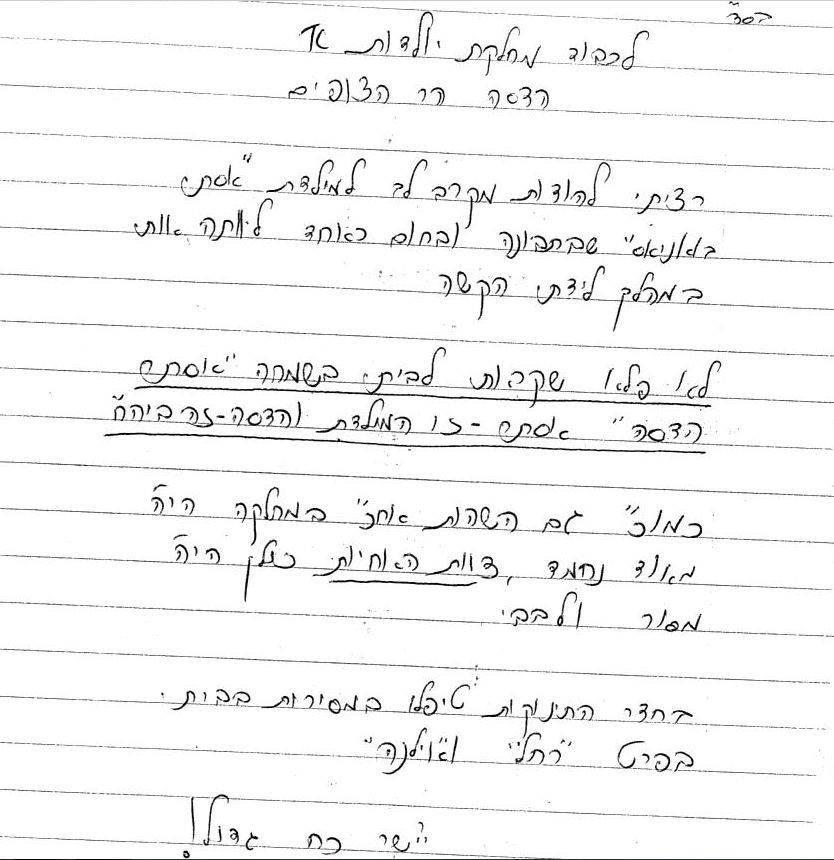 בסד"
לכבוד מחלקת יולדות א'
הדסה הר הצופים
רציתי להודות מקרב לב למילדת "אסתי
באניאס" שבתבונה ובחום כאחד ליוותה אותי
במהלך לידתי הקשה
לא פלא שקרות לבית בשמחה "אסתי
הדסה" אסתי - זו המילדת והדסה - זה ביה"ח
כמוכ" גם השהות אוחכ" במחלקה היה
מאוד נחמד, צוות האחיות כולן היה
מסור ולבבי.
בחדר התינוקות טיפלו במסירות בבתי.
בפרט "רחלי" ו"וילנה"
יישר כח גדול!